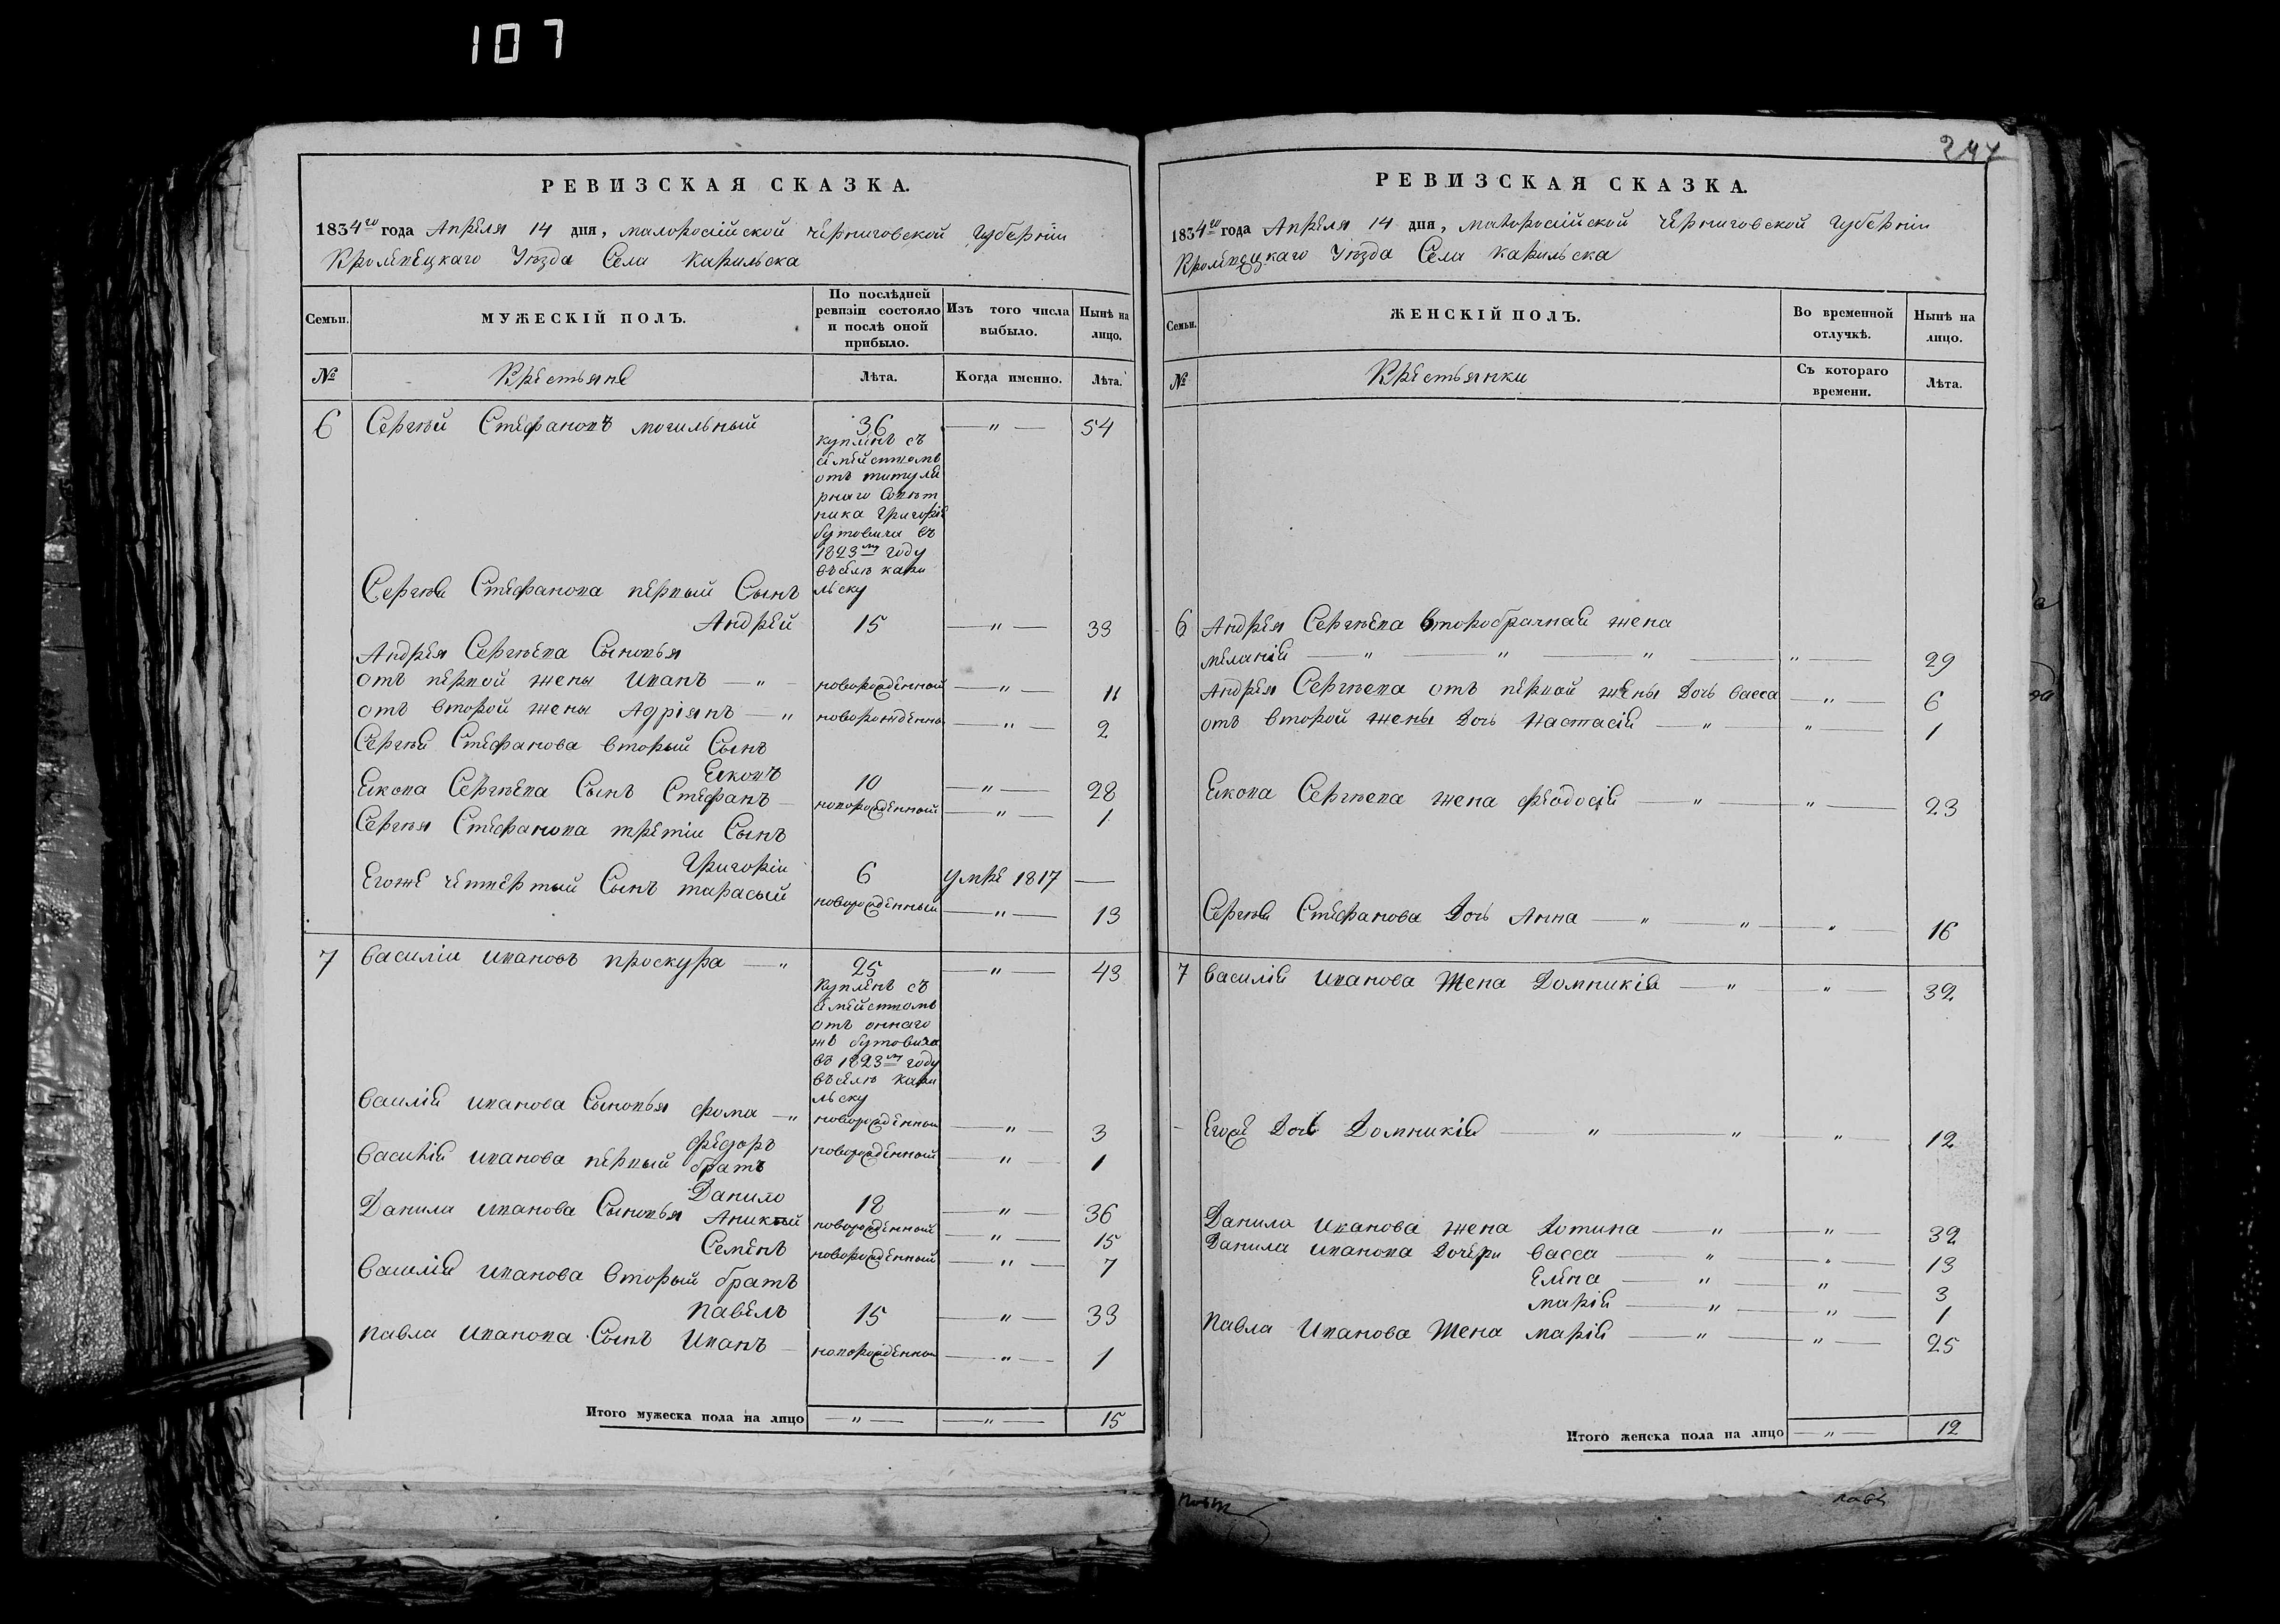 107
247
РЕВИЗСКАЯ СКАЗКА.
1834го года Апреля 14 дня, малоросійской черниговской Губерніи
Кролевецкаго Уѣзда Села Карильска
Семьи.
МУЖЕСКІЙ ПОЛЪ.
По послѣдней ревизіи состояло и послѣ оной прибыло.
Изъ того числа выбыло.
Нынѣ на лицо.
№
Крестьяне
Лѣта.
Когда именно.
Лѣта.
6 Сергѣй Стефановъ могильный 36 — " — 54
купленъ съ
семействомъ
отъ титуля
рнаго Совѣт
ника Григорія
бутовича въ
1823м году
въ селѣ кари
льску
Сергѣя Стефанова первый Сынъ
Андрей 15 — " — 33
Андрея Сергѣева Сыновья
отъ первой жены Иванъ — " — новорожденный — " — 11
отъ второй жены Адріянъ — " новорожденны — " — 2
Сергѣя Стефанова вторый Сынъ
Еяковъ 10 — " — 28
Еякова Сергѣева Сынъ Стефанъ — новорожденный — " — 1
Сергѣя Стефанова третіи Сынъ
Григоріи 6 умре 1817 —
Егоже четвертый Сынъ тарасый новорожденный — " — 13
7 Василіи Ивановъ проскура — " 25 — " — 43
купленъ съ
семействомъ
отъ оннаго
же бутовича
въ 1823м году
въ селѣ кари
льску
Василія Иванова Сыновья фома — " новорожденныи — " — 3
федоръ новорожденный — " — 1
Василія Иванова первый братъ
Данило 18 — " — 36
Данила Иванова Сыновья Аникый новорожденный — " — 15
Семенъ новорожденный — " — 7
Василія Иванова вторый братъ
павелъ 15 — " — 33
павла Иванова Сынъ Иванъ — новорожденныи — " — 1
Итого мужеска пола на лицо — " — — " — 15
РЕВИЗСКАЯ СКАЗКА.
1834го года Апреля 14 дня, малоросійской Черниговской Губерніи
Кролевецкаго Уѣзда Села Карильска
Семьи.
ЖЕНСКІЙ ПОЛЪ.
Во временной отлучкѣ.
Нынѣ на лицо.
№
Крестьянки
Съ котораго времени.
Лѣта.
6 Андрея Сергѣева второбрачная жена
меланія — " — " — " — " — 29
Андрея Сергѣева отъ первой жены Дочь васса — " — 6
отъ второй жены Дочь Настасія — " — " — 1
Еякова Сергѣева жена феодосія — " — " — 23
Сергѣя Стефанова Дочь Анна — " — " — " — 16
7 Василія Иванова Жена Домникія — " — " — 32
Егоже Дочь Домникія — " — " — " — 12
Данила Иванова жена Хотина — " — " — 32
Данила Иванова Дочери васса — " — " — 13
Елена — " — " — 3
марія — " — " — 1
Павла Иванова Жена марія — " — " — 25
Итого женска пола на лицо — " — 12